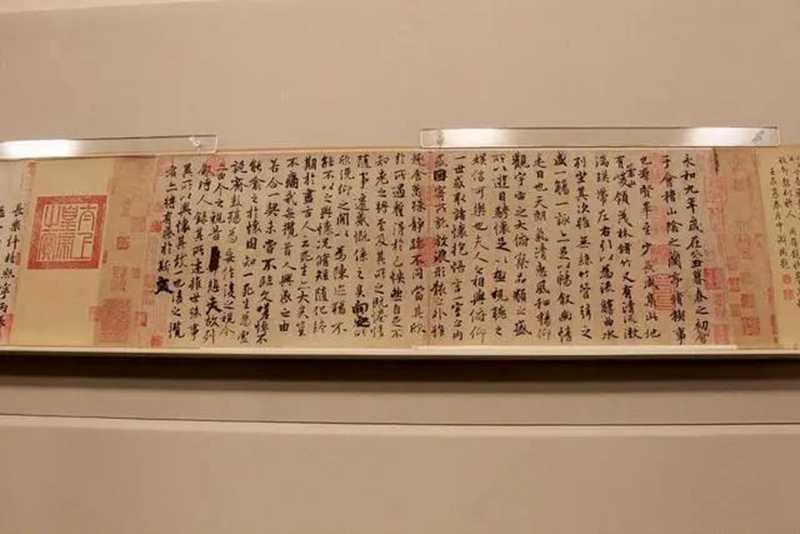 永和九年歲在癸丑暮春之初會
于會稽山陰之蘭亭脩稧事
也羣賢畢至少長咸集此地
有崇山峻領茂林脩竹又有清流激
湍暎帶左右引以為流觴曲水
列坐其次雖無絲竹管弦之
盛一觴一詠亦足以暢敘幽情
是日也天朗氣清惠風和暢仰
觀宇宙之大俯察品類之盛
所以遊目騁懷足以極視聽之
娛信可樂也夫人之相與俯仰
一世或取諸懷抱悟言一室之內
或因寄所託放浪形骸之外雖
趣舍萬殊靜躁不同當其欣
於所遇蹔得於己怏然自足不
知老之將至及其所之既惓情
隨事遷感慨係之矣向之所
欣俛仰之閒以為陳迹猶不
能不以之興懷況脩短隨化終
期於盡古人云死生亦大矣豈
不痛哉每攬昔人興感之由
若合一契未嘗不臨文嗟悼不
能喻之於懷固知一死生為虛
誕齊彭殤為妄作後之視今
亦由今之視昔悲夫故列
敘時人錄其所述雖世殊事
異所以興懷其致一也後之攬
者亦將有感於斯文
太上皇帝之寶
長樂許將熙寧丙辰